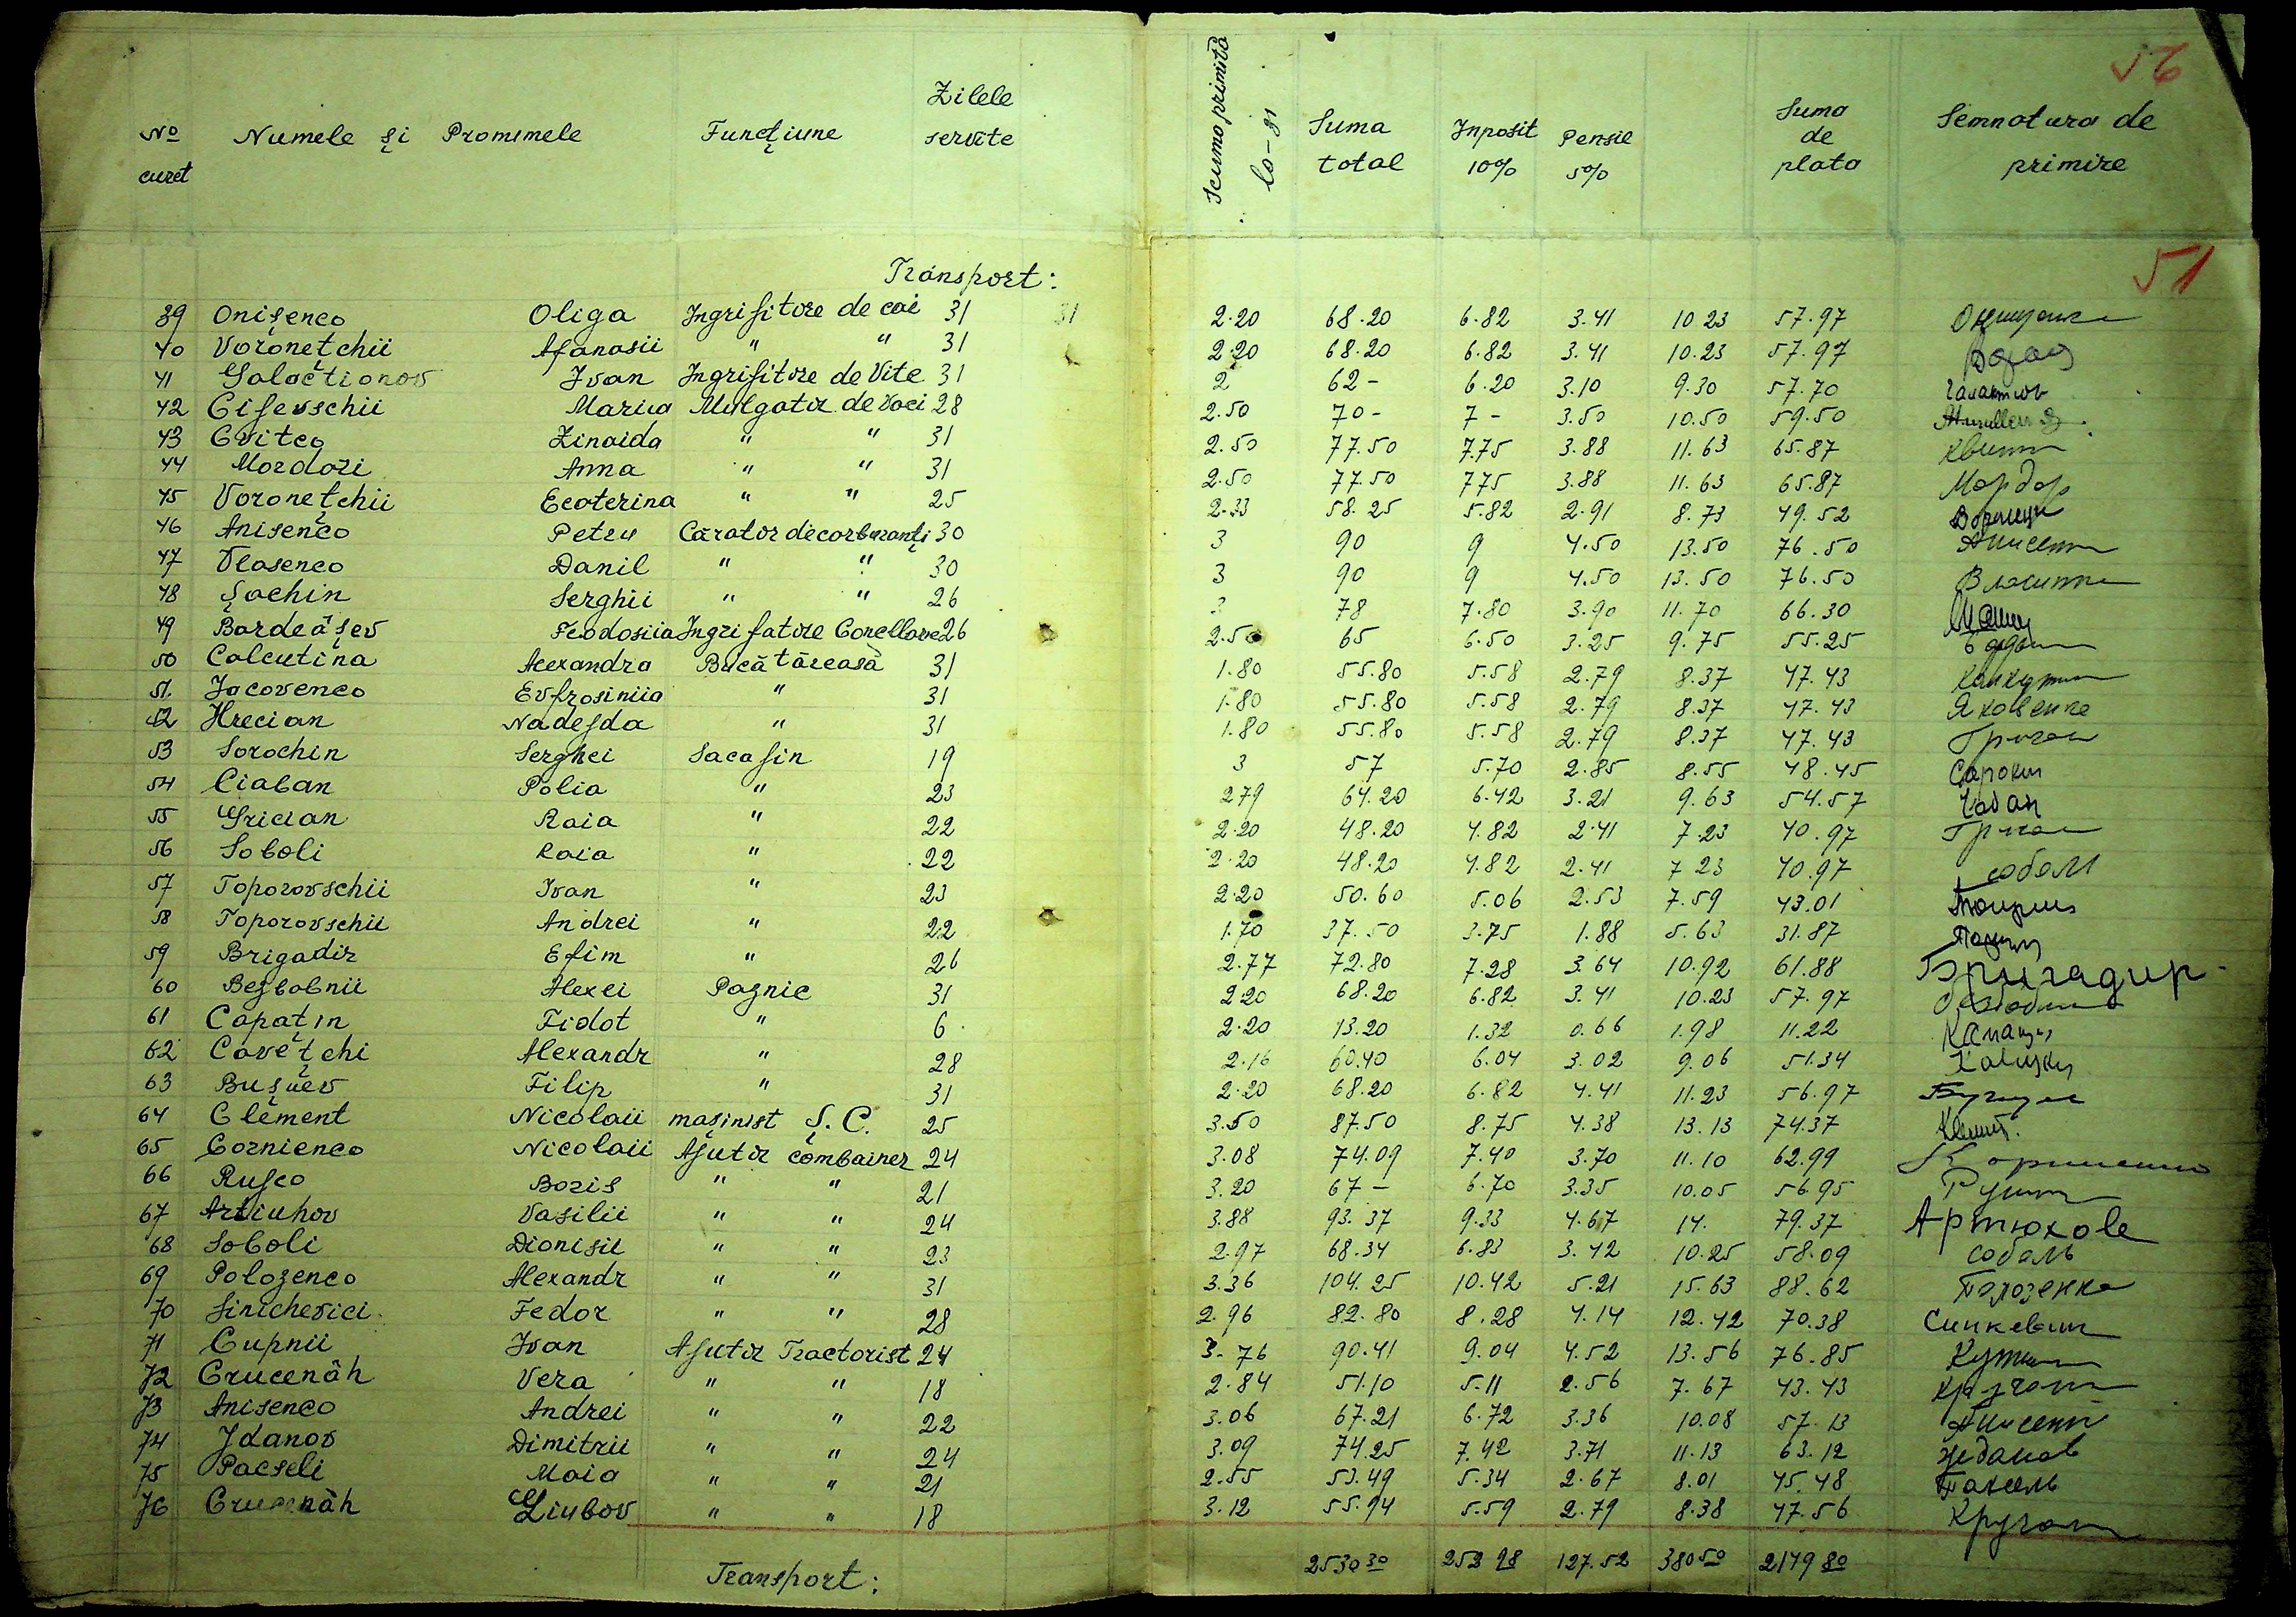 56
№ curet Numele și Pronumele Funcțiune Zilele servite Scumo primita la-zi Suma total Inposit 10% Pensie 5% Suma de plata Semnatura de primire
51
Transport:
39 Onișenco Oliga Ingrijitore de cai 31 31 2.20 68.20 6.82 3.41 10 23 57.97
40 Voronețchii Afanasii " " 31 2.20 68.20 6.82 3.41 10.23 57.97
41 Galactionov Ivan Ingrijitore de Vite 31 2 62- 6.20 3.10 9.30 57.70 Галактион
42 Cijevschii Mariia Mulgatir de Vaci 28 2.50 70- 7- 3.50 10.50 59.50
43 Cvitco Zinaida " " 31 2.50 77.50 7.75 3.88 11.63 65.87 Квитк
44 Mordari Anna " " 31 2.50 77.50 775 3.88 11.63 65.87 Мордор
45 Voronețchii Ecaterina " " 25 2.33 58.25 5.82 2.91 8.73 49.52
46 Anisenco Petru Carator de carburanți 30 3 90 9 4.50 13.50 76.50
47 Vlasenco Danil " " 30 3 90 9 4.50 13.50 76.50
48 Șachin Serghii " " 26 3 78 7.80 3.90 11.70 66.30
49 Bardeașev Feodosiia Ingrijatire Conellare 26 2.50 65 6.50 3.25 9.75 55.25
50 Calcutina Alexandra Bucătăreasă 31 1.80 55.80 5.58 2.79 8.37 47.43
51. Jacovenco Evfrosiniia " 31 1.80 55.80 5.58 2.79 8.37 47.43 Яковенко
52 Hrecian Nadejda " 31 1.80 55.80 5.58 2.79 8.37 47.43
53 Sorochin Serghei Sacajin 19 3 57 5.70 2.85 8.55 48.45 Сарокин
54 Ciaban Polia " 23 279 64.20 6.42 3.21 9.63 54.57 Чабан
55 Grician Raia " 22 2.20 48.20 4.82 2.41 7.23 40.97
56 Soboli Raia " 22 2.20 48.20 4.82 2.41 7 23 40.97 соболь
57 Toporovschii Ivan " 23 2.20 50.60 5.06 2.53 7.59 43.01
58 Toporovschii Andrei " 22 1.70 37.50 3.75 1.88 5.63 31.87
59 Brigadir Efim " 26 2.77 72.80 7.28 3.64 10.92 61.88 Бригадир
60 Bezbobnii Alexei Paznic 31 2.20 68.20 6.82 3.41 10.23 57.97
61 Capațin Fidot " 6 2.20 13.20 1.32 0.66 1.98 11.22 Капацин
62 Cavețchi Alexandr " 28 2.16 60.40 6.04 3.02 9.06 51.34
63 Bușuev Filip " 31 2.20 68.20 6.82 4.41 11.23 56.97
64 Clement Nicolaii mașinist Ș.C. 25 3.50 87.50 8.75 4.38 13.13 74.37
65 Cornienco Nicolaii Ajutir combainer 24 3.08 74.09 7.40 3.70 11.10 62.99
66 Rujco Boris " " 21 3.20 67- 6.70 3.35 10.05 56.95
67 Artiuhov Vasilii " " 24 3.88 93.37 9.33 4.67 14. 79.37 Артюхов
68 Soboli Dionisii " " 23 2.97 68.34 6.83 3.42 10.25 58.09 соболь
69 Polozenco Alexandr " " 31 3.36 104.25 10.42 5.21 15.63 88.62 Полозенко
70 Sinichevici Fedor " " 28 2.96 82.80 8.28 4.14 12.42 70.38 Синкевич
71 Cupnii Ivan Ajutir Tractorist 24 3.76 90.41 9.04 4.52 13.56 76.85
72 Crucenăh Vera " " 18 2.84 51.10 5.11 2.56 7.67 43.43
73 Anisenco Andrei " " 22 3.06 67.21 6.72 3.36 10.08 57.13
74 Jdanov Dimitrii " " 24 3.09 74.25 7.42 3.71 11.13 63.12 Жданов
75 Pacseli Maia " " 21 2.55 53.49 5.34 2.67 8.01 45.48 Паксель
76 Crucenăh Liubov " " 18 3.12 55.94 5.59 2.79 8.38 47.56
Transport: 2530 30 252 98 127.52 380 50 2149 80